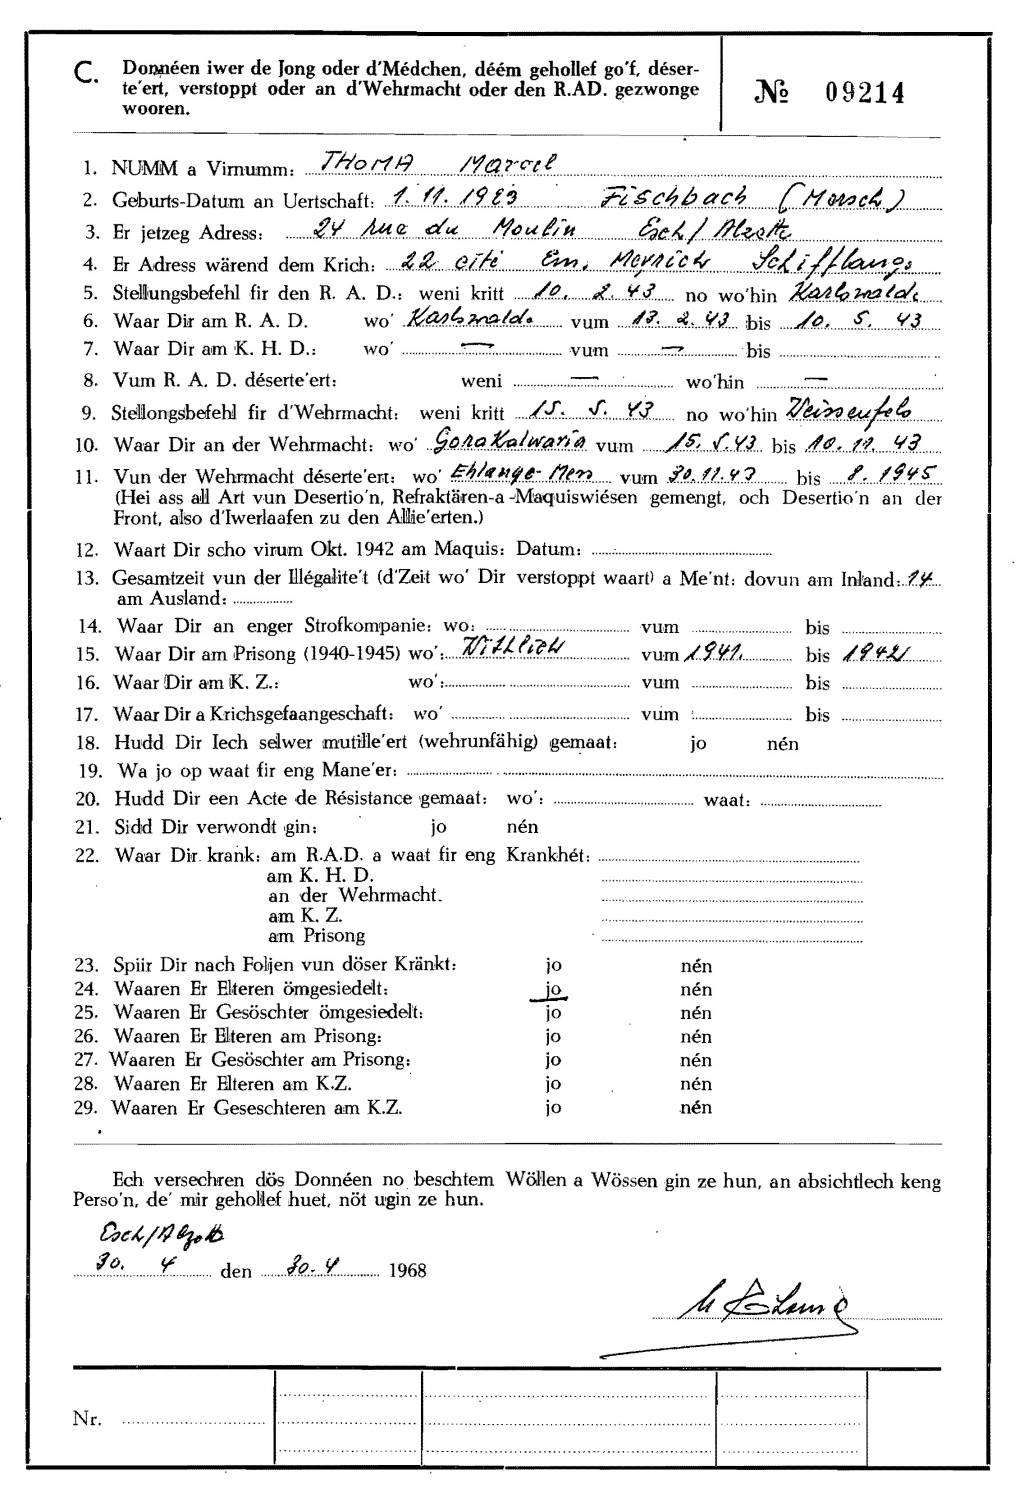 C. Donnéen iwer de Jong oder d'Médchen, déém gehollef go'f, déser-
te'ert, verstoppt oder an d'Wehrmacht oder den R.AD. gezwonge
wooren.
№ 09214
1. NUMM a Virnumm: THOMA Marcel
2. Geburts-Datum an Uertschaft: 1. 11. 1923 Fischbach (Mersch)
3. Er jetzeg Adress: 24 rue du Moulin Esch/Alzette
4. Er Adress wärend dem Krich: 22 cité Em. Meyrich Schifflange
5. Stellungsbefehl fir den R. A. D.: weni kritt 10. 2. 43 no wo'hin Karlswalde
6. Waar Dir am R. A. D. wo' Karlswalde vum 13. 2. 43 bis 10. 5. 43
7. Waar Dir am K. H. D.: wo' — vum — bis
8. Vum R. A. D. déserte'ert: weni — wo'hin —
9. Stellongsbefehl fir d'Wehrmacht: weni kritt 15. 5. 43 no wo'hin Weissenfels
10. Waar Dir an der Wehrmacht: wo' Gora Kalwaria vum 15. 5. 43 bis 10. 11. 43
11. Vun der Wehrmacht déserte'ert: wo' Ehlange-Men vum 30. 11. 43 bis 8. 1945
(Hei ass all Art vun Desertio'n, Refraktären-a-Maquiswiésen gemengt, och Desertio'n an der
Front, also d'Iwerlaafen zu den Allie'erten.)
12. Waart Dir scho virum Okt. 1942 am Maquis: Datum:
13. Gesamtzeit vun der Illégalite't (d'Zeit wo' Dir verstoppt waart) a Me'nt: dovun am Inland: 14
am Ausland:
14. Waar Dir an enger Strofkompanie: wo: vum bis
15. Waar Dir am Prisong (1940-1945) wo': Wittlich vum 1941 bis 1942
16. Waar Dir am K. Z.: wo': vum bis
17. Waar Dir a Krichsgefaangeschaft: wo' vum bis
18. Hudd Dir Iech selwer mutille'ert (wehrunfähig) gemaat: jo nén
19. Wa jo op waat fir eng Mane'er:
20. Hudd Dir een Acte de Résistance gemaat: wo': waat:
21. Sidd Dir verwondt gin: jo nén
22. Waar Dir krank: am R.A.D. a waat fir eng Krankhét:
am K. H. D.
an der Wehrmacht.
am K. Z.
am Prisong
23. Spiir Dir nach Foljen vun döser Kränkt: jo nén
24. Waaren Er Elteren ömgesiedelt: jo nén
25. Waaren Er Gesöschter ömgesiedelt: jo nén
26. Waaren Er Elteren am Prisong: jo nén
27. Waaren Er Gesöschter am Prisong: jo nén
28. Waaren Er Elteren am K.Z. jo nén
29. Waaren Er Geseschteren am K.Z. jo nén
Ech versechren dös Donnéen no beschtem Wöllen a Wössen gin ze hun, an absichtlech keng
Perso'n, de' mir gehollef huet, nöt ugin ze hun.
Esch/Alzette
30. 4 den 30. 4 1968
Nr.